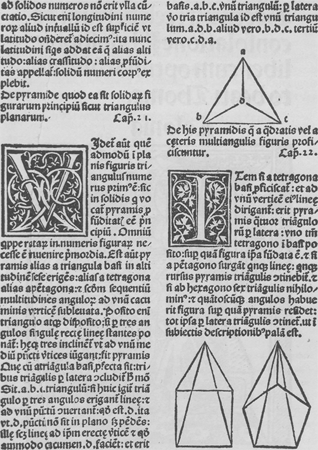 ad solidos numeros nō erit vlla cū-
ctatio. Sicut enī longitudini nume-
latitudo onderet adiecim⁹: ita nunc
latitudini siqs addat eā q̄ alias alti-
tudo: alias crassitudo: alias p̄fūdi-
tas appellaī: solidū numeri corp⁹ ex-
plebit.
De pyramide quod ea sit solidaꝝ fi-
gurarum principiū sicut triangulus
planarum. Cap. 21.
Videt̄ aūt quē
admodū ī pla
nis figuris tri
angulus nume
rus prim⁹ ē: sic
in solidis q̄ vo
cāt pyramis p̄-
fūditatꝭ eē prī
cipiū. Omniū
cesse ē inuenire pmordia. Est aūt py-
ramis alias a triangula basi in alti-
tudinē sese erigēs: alias a tetragona
alias a pētagona: ⁊ scḋm sequentiū
multitudines anguloꝝ ad vnū cacu-
minis v̄ticē subleuata. Posito enī
triangulo atq; disposito: si p tres an-
gulos singule recte linee stantes po-
nant̄: heq tres inclinēt̄ vt ad vnū me
diū pūctū v̄tices iūgant̄: fit pyramis
Que cū a triāgula basi p̄fecta sit: tri-
bus triāgulis p latera ɔcludit̄ h̄ mō
Sit. a. b. c. triangulū: si huic igit̄ triā
gulo p tres angulos erigant̄ linee: ⁊
ad vnū pūctū ɔuertant̄: qđ est. d. ita
vt. d. punctū nō sit in plano: sꝫ pēdēs:
ille scꝫ linee ad ipm erecte v̄ticē ⁊ qđ
ammodo cacumen. d. faciēt: ⁊ erit
basis. a. b. c. vnū triangulū: p latera
vo tria triangula id est vnū triangu
lum. a. d. b. aliud vero. b. d. c. tertiū
vero. c. d. a.
a
d
b c
De his pyramidis q̄ a q̄dratis vel a
ceteris multiangulis figuris profi-
ciscuntur. Cap. 22.
Item si a tetragona
basi p̄ficiscat̄: ⁊ ad
vnū verticē ei⁹ linee
dirigant̄: erit pyra-
mis q̄tuor triāgulo
rū p latera: vno tm̄
tetragono ī basi po
sito: sup quā figura ip̄a fūdata ē. ⁊ si
a pētagono surgāt qnq; linee: qnq;
rursus pyramis triāgulis ɔtinebit̄. ⁊
si ab exagono sex triāgulis nihilo mi-
nin⁹. ⁊ quātoscūq; angulos habue
rit figura sup quā pyramis residet:
tot ip̄a p latera triāgulis ɔtinet̄: vt ī
subiectis descriptionib⁹ palā est.